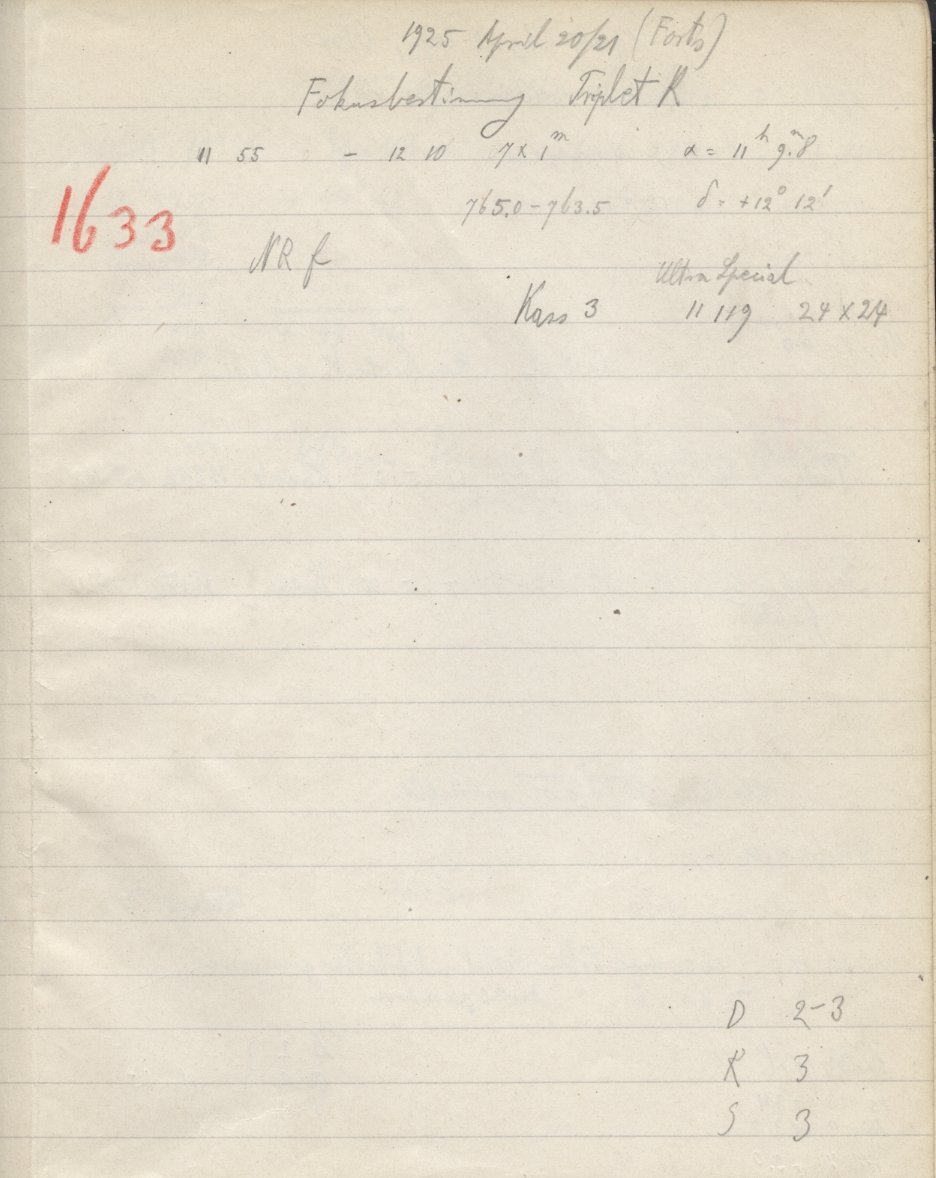 1925 April 20/21 (Forts)
Fokusbestimmung Triplet K
11 55 - 12 10 7 x 1^m α = 11^h 9^m.8
765.0 - 763.5 δ = +12° 12'
1633
NR f
Ultra Special
Kass 3 11 119 24 x 24
D 2-3
K 3
S 3